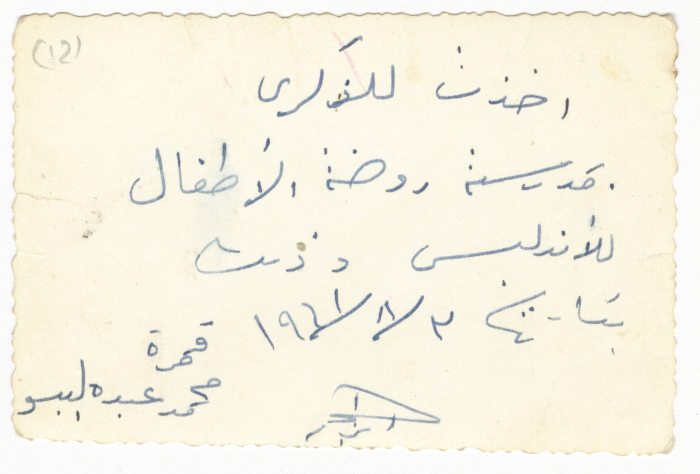 (12)
اخذت للذكرى
بمدرسة روضة الأطفال
للأندلس وذلك
بتاريخ ٣/٨/١٩٦١
قمرة
محمد عبده البس